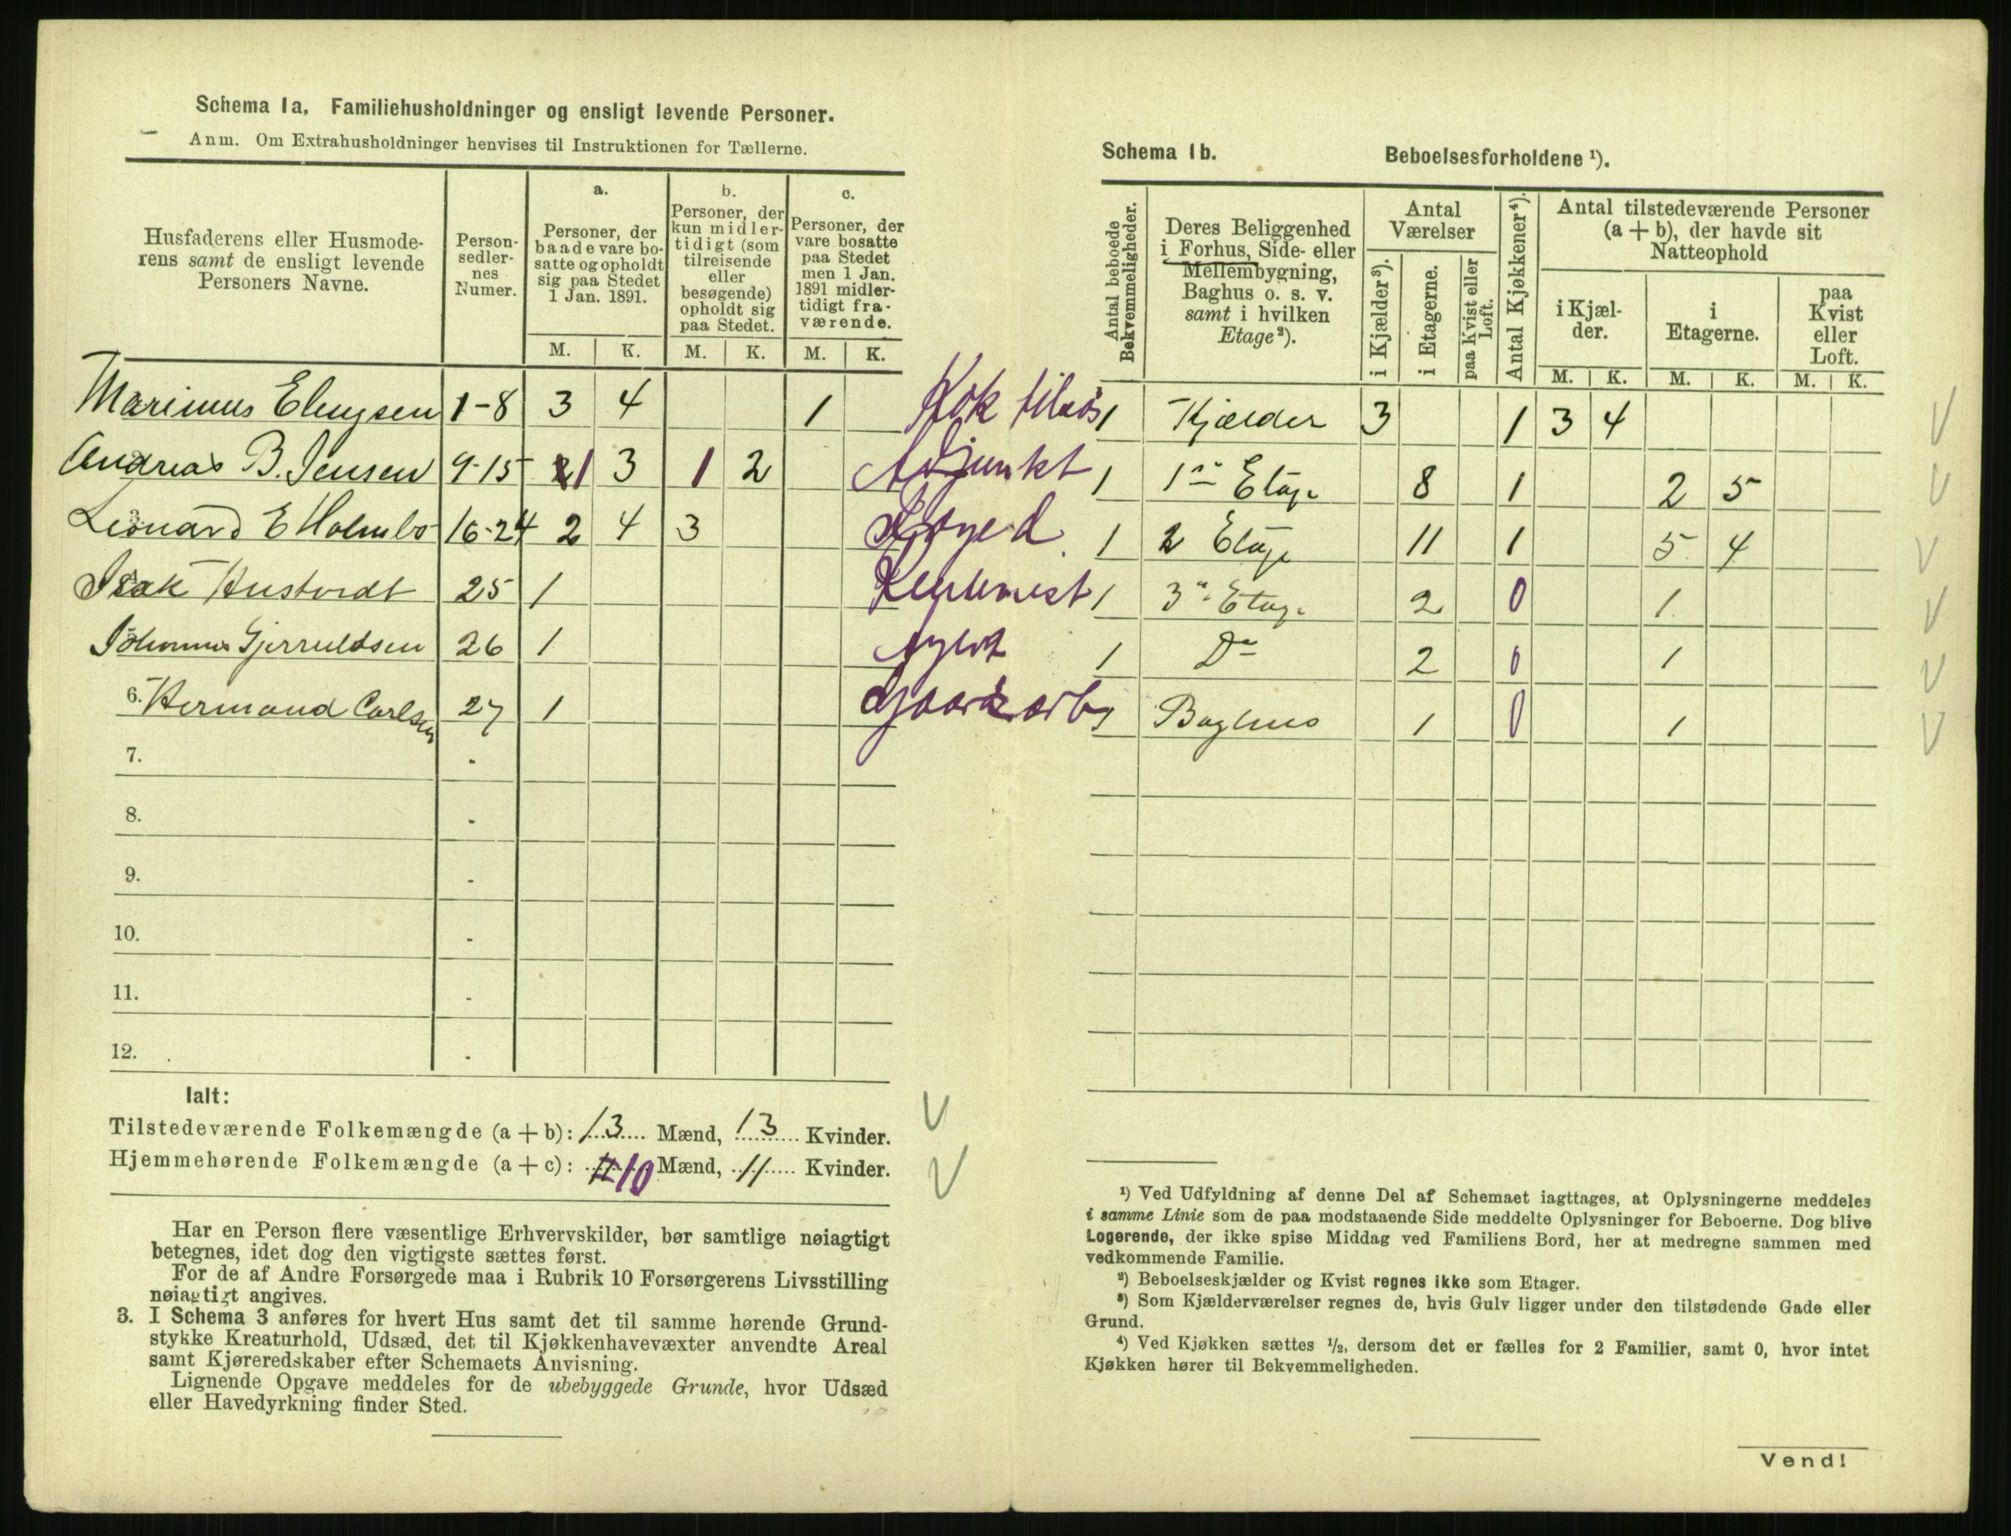 Schema 1a, Familiehusholdninger og ensligt levende Personer.
Anm. Om Extrahusholdninger henvises til Instruktionen for Tællerne.
Husfaderens eller Husmoderens samt de ensligt levende Personers Navne.
Personsedlernes Numer.
a.
Personer, der baade vare bosatte og opholdt sig paa Stedet 1 Jan. 1891.
b.
Personer, der kun midlertidigt (som tilreisende eller besøgende) opholdt sig paa Stedet.
c.
Personer, der vare bosatte paa Stedet men 1 Jan. 1891 midlertidigt fraværende.
M. K. M. K. M. K.
Marinus 1-8 3 4 1 Kok
Andreas B. Jensen 9-15 1 3 1 2 Adjunkt
Leonard E Holmbo 16-24 2 4 3
Isak 25 1
26 1
6. Hermand Carlsen 27 1
7.
8.
9.
10.
11.
12.
Ialt:
Tilstedeværende Folkemængde (a+b): 13 Mænd, 13 Kvinder.
Hjemmehørende Folkemængde (a+c): 10 Mænd, 11 Kvinder.
Har en Person flere væsentlige Erhvervskilder, bør samtlige nøiagtigt
betegnes, idet dog den vigtigste sættes først.
For de af Andre Forsørgede maa i Rubrik 10 Forsørgerens Livsstilling
nøiagtigt angives.
3. I Schema 3 anføres for hvert Hus samt det til samme hørende Grund-
stykke Kreaturhold, Udsæd, det til Kjøkkenhavevæxter anvendte Areal
samt Kjøreredskaber efter Schemaets Anvisning.
Lignende Opgave meddeles for de ubebyggede Grunde, hvor Udsæd
eller Havedyrkning finder Sted.
Schema 1b. Beboelsesforholdene ¹).
Antal beboede Bekvemmeligheder.
Deres Beliggenhed i Forhus, Side- eller Mellembygning, Baghus o. s. v. samt i hvilken Etage²).
Antal Værelser
i Kjælder³).
i Etagerne.
paa Kvist eller Loft.
Antal Kjøkkener⁴).
Antal tilstedeværende Personer (a+b), der havde sit Natteophold
i Kjælder.
i Etagerne.
paa Kvist eller Loft.
M. K. M. K. M. K.
1 Kjælder 3 1 3 4
1 1ste Etage 8 1 2 5
1 2 Etage 11 1 5 4
1 3 Etage 2 0 1
1 Do 2 0 1
1 Baghus 1 0 1
¹) Ved Udfyldning af denne Del af Schemaet iagttages, at Oplysningerne meddeles
i samme Linie som de paa modstaaende Side meddelte Oplysninger for Beboerne. Dog blive
Logerende, der ikke spise Middag ved Familiens Bord, her at medregne sammen med
vedkommende Familie.
²) Beboelseskjælder og Kvist regnes ikke som Etager.
³) Som Kjælderværelser regnes de, hvis Gulv ligger under den tilstødende Gade eller
Grund.
⁴) Ved Kjøkken sættes ½, dersom det er fælles for 2 Familier, samt 0, hvor intet
Kjøkken hører til Bekvemmeligheden.
Vend!